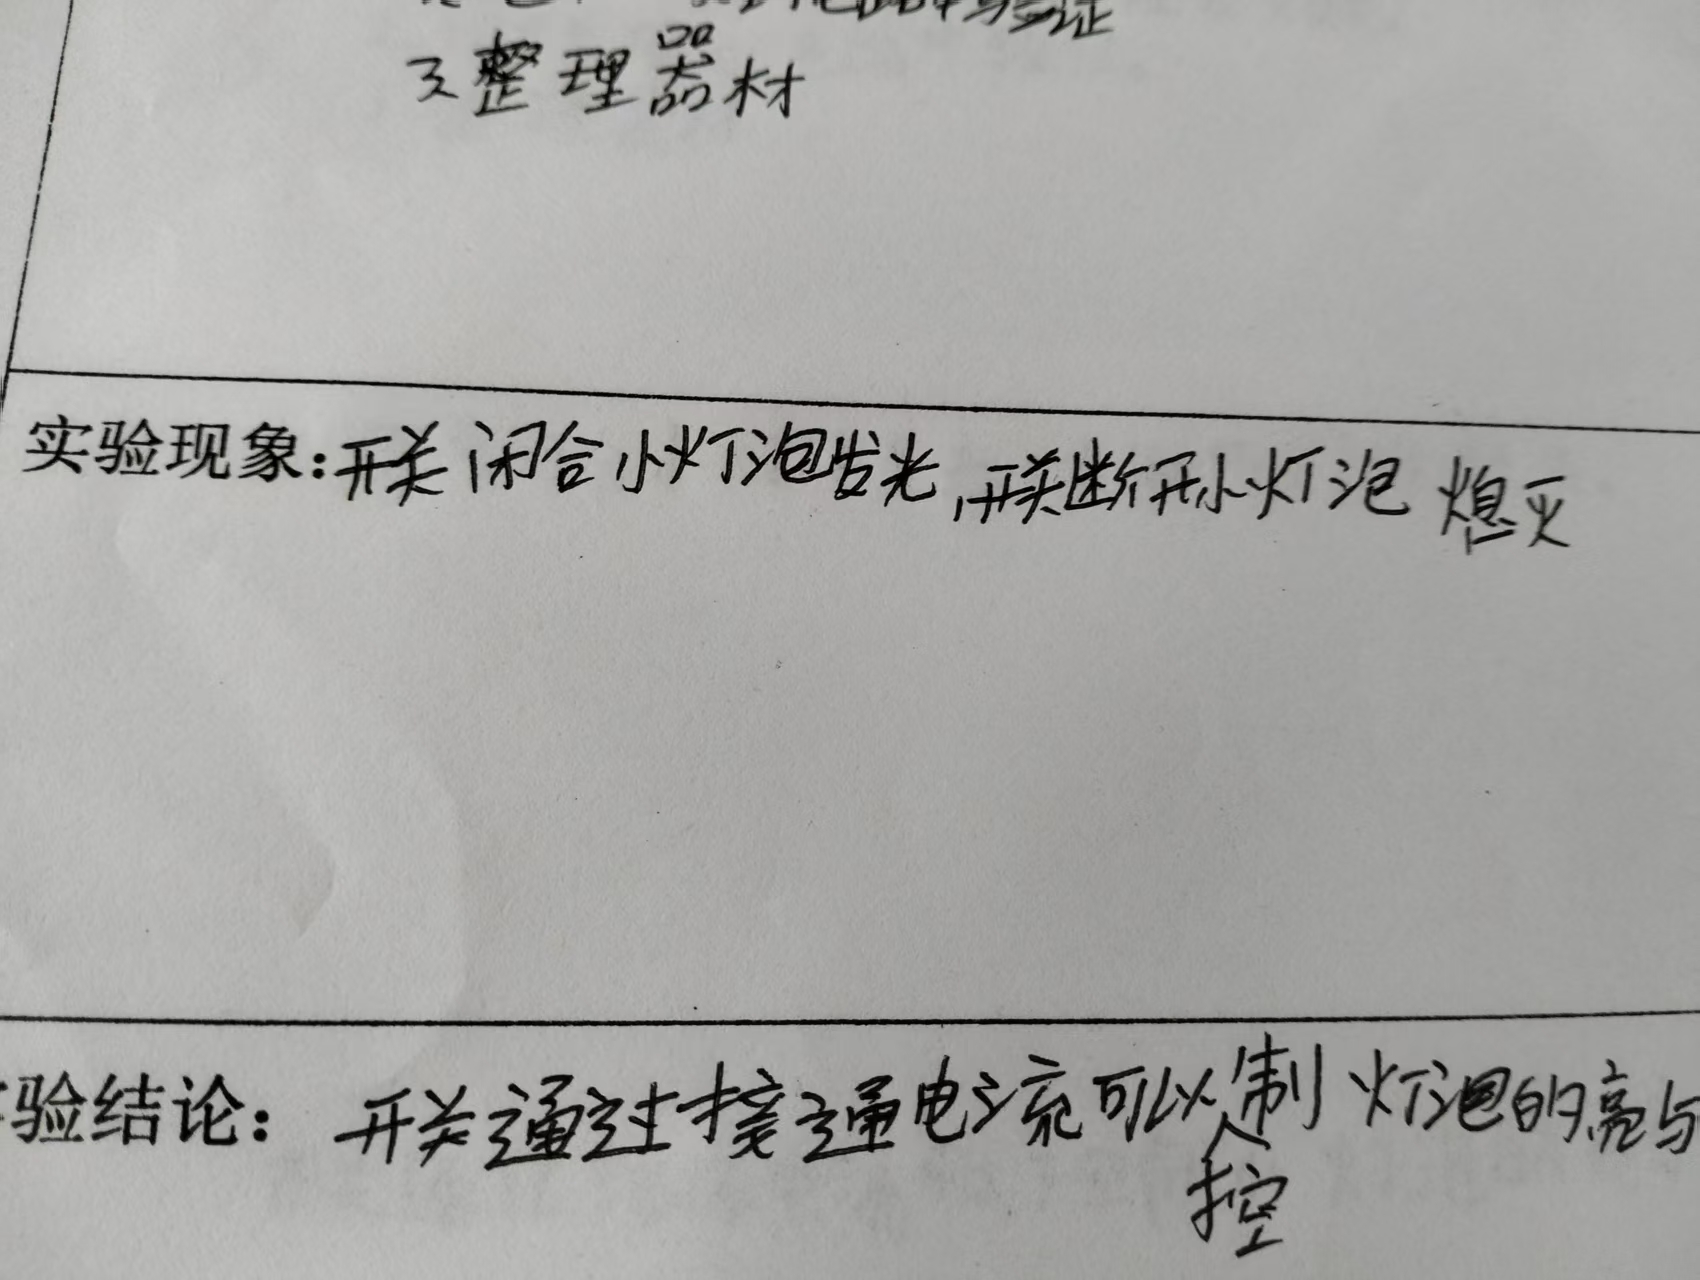 验证
3整理器材
实验现象:开关闭合小灯泡发光,开关断开小灯泡熄灭
验结论:开关通过接通电流可以控制灯泡的亮与